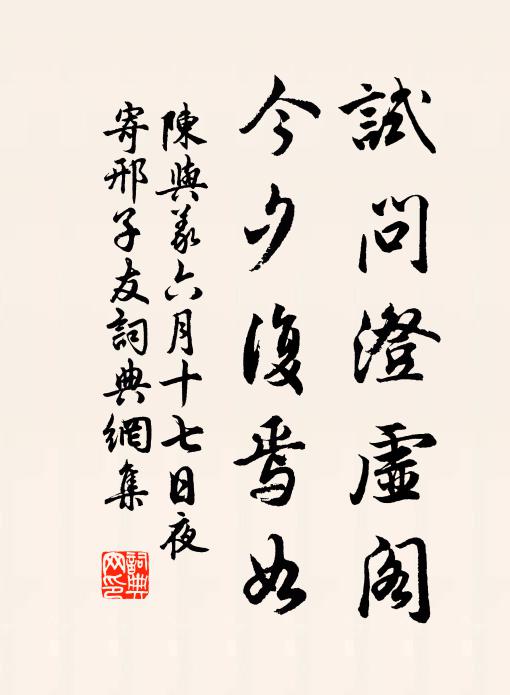 試問澄虛閣
今夕復焉如
陳與義六月十七日夜
寄邢子友詞典網集
詞典網印